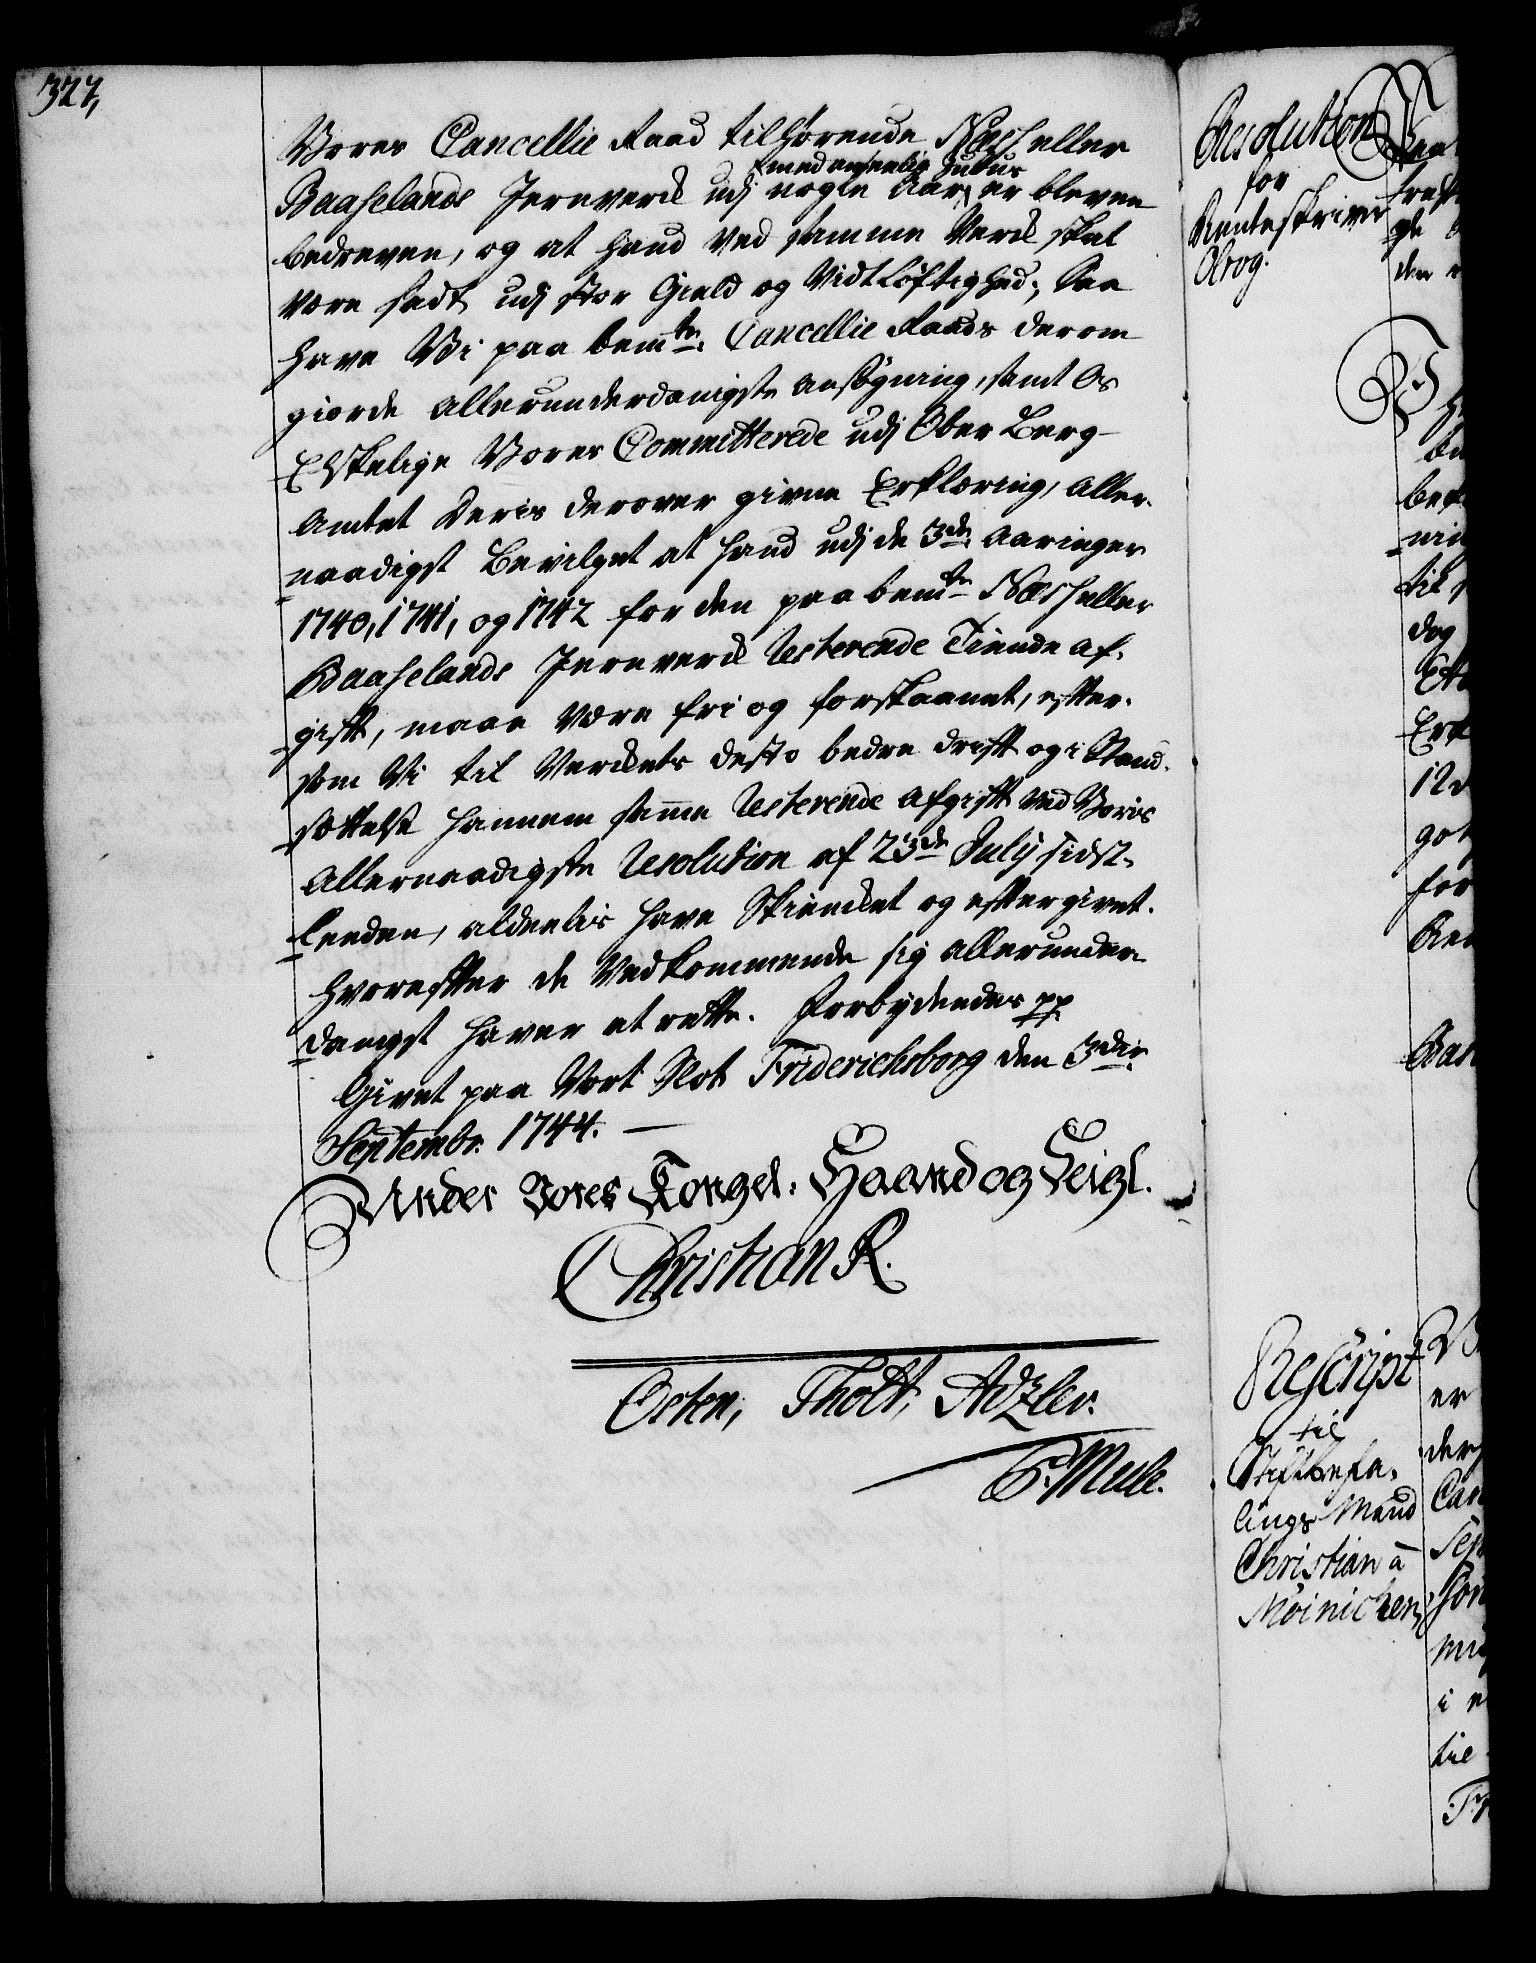 327,
Vores Cancellie Raad tilhørende Næs eller
med anseelig Zubus
Baaselands Jernverck udj nogle Aar, er bleven
bedreven, og at hand ved samme Verck skal
være sadt udj stor Gield og Vidtløftighed; Saa
have Vi paa bemte. Cancellie Raads derom
giorde allerunderdanigste ansøgning, samt Os
Elskelige Vores Committerede udj Ober Berg-
Amtet deris derover givne Erklæring, aller-
naadigst bevilget at hand udj de 3de. Aaringer
1740, 1741, og 1742 for den paa bemte Næs eller
Baaselands Jernverck Resterende Tiende af-
gift, maae være fri og forskaanet, efter-
som Vi til Verckets desto bedre drift og i Stand-
sættelse hannem samme Resterende afgift ved Voris
allernaadigste Resolution af 23de July sidst-
leeden, aldeelis have Skiencket og eftergivet.
Hvorefter de Vedkommende sig allerunder-
danigst haver at rette. Forbydendes pp.
Givet paa Vort Slot Friderichsborg den 3die.
Septembr. 1744. —
Under Vores Kongel. Haand og Seigl.
Christian R.
Osten, Thott, Adzler.
P. Mule.
Resolution
for
Renteskriver
Olrog.
den
12
for
Rescript
til
Stiftbefa-
lings Mand
Christian à
Møinichen,
er
i
til